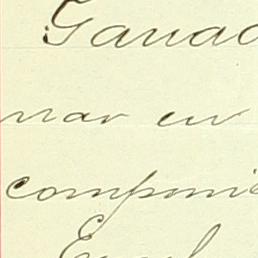 Ganad
nar en
componi